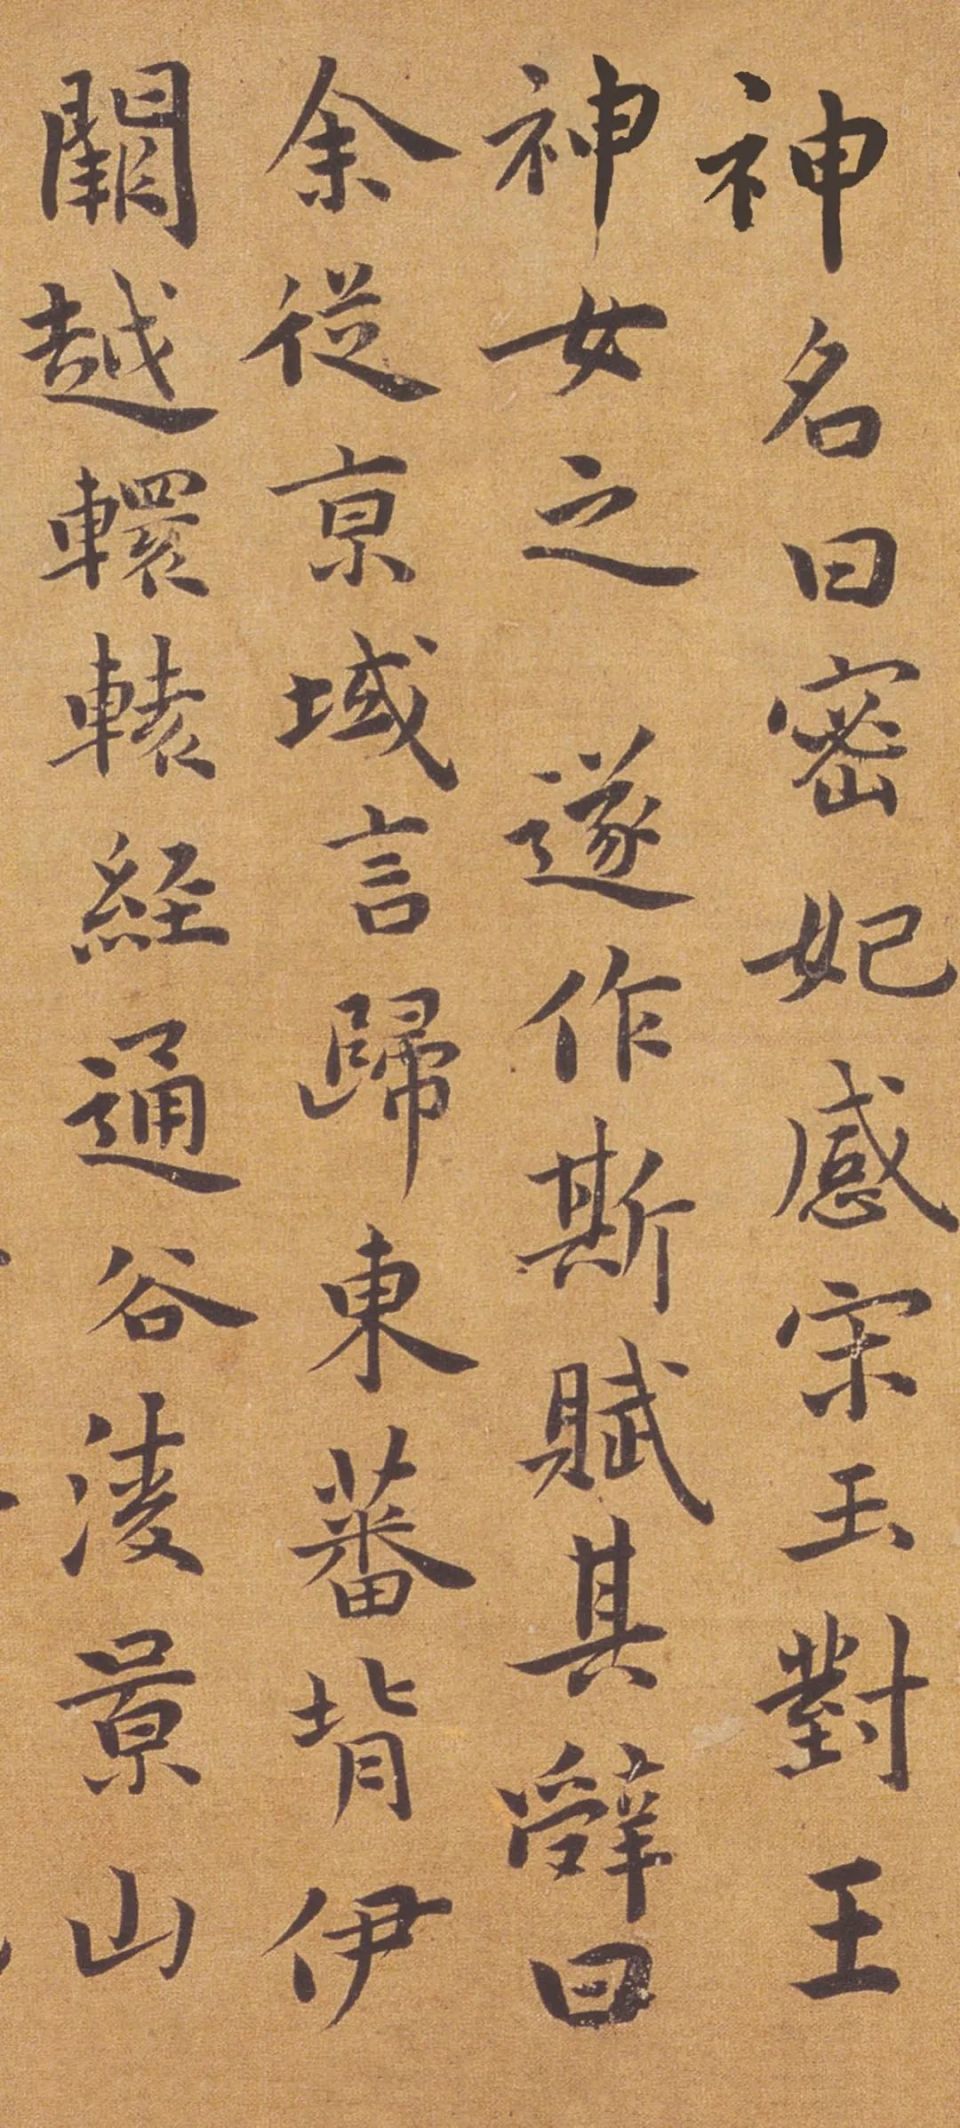 神名曰密妃感宋玉對王
神女之遂作斯賦其辭曰
余從京域言歸東蕃背伊
闕越轘轅經通谷淩景山